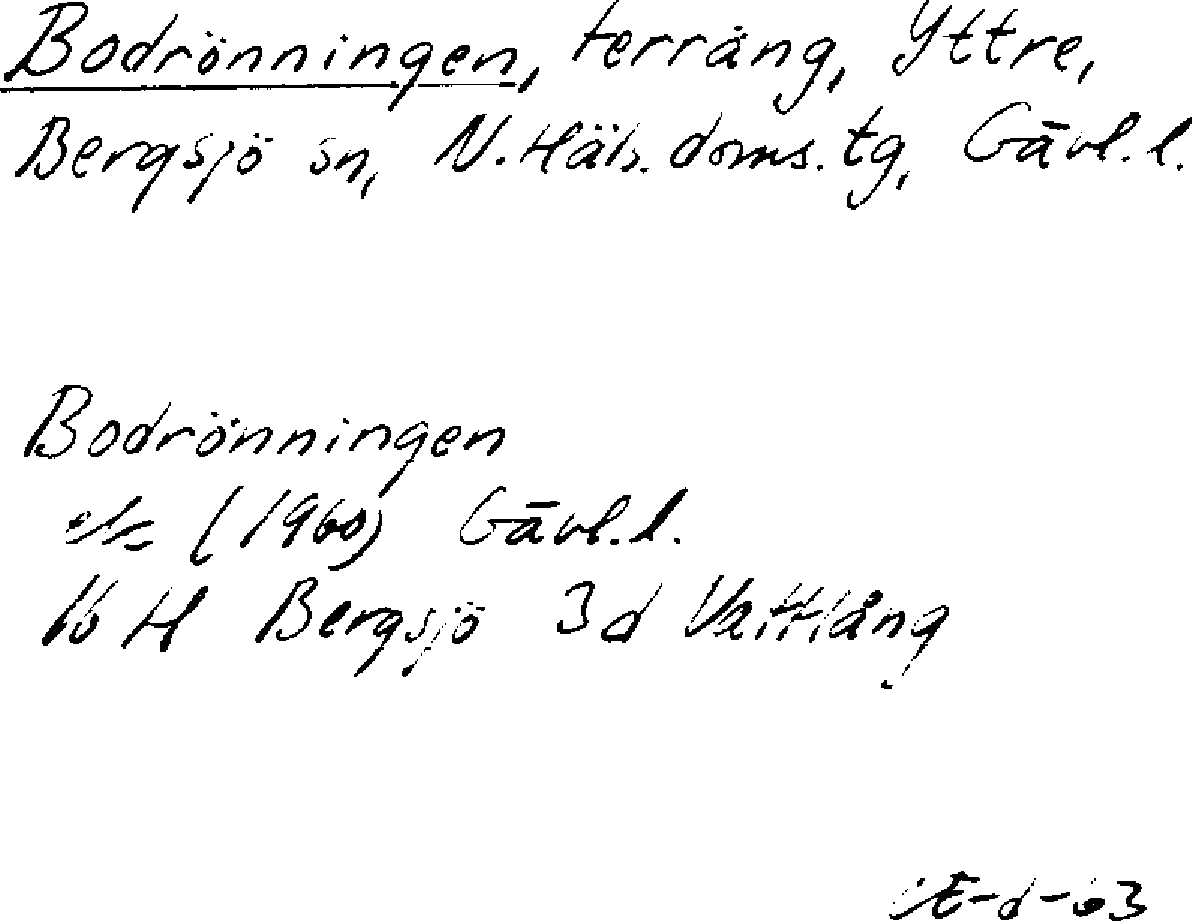 Bodrönningen, terräng, Yttre,
Bergsjö sn, N. Häls. doms. tg, Gävl. l.
Bodrönningen
ek (1960) Gävl. l.
16 H Bergsjö 3d Vattlång